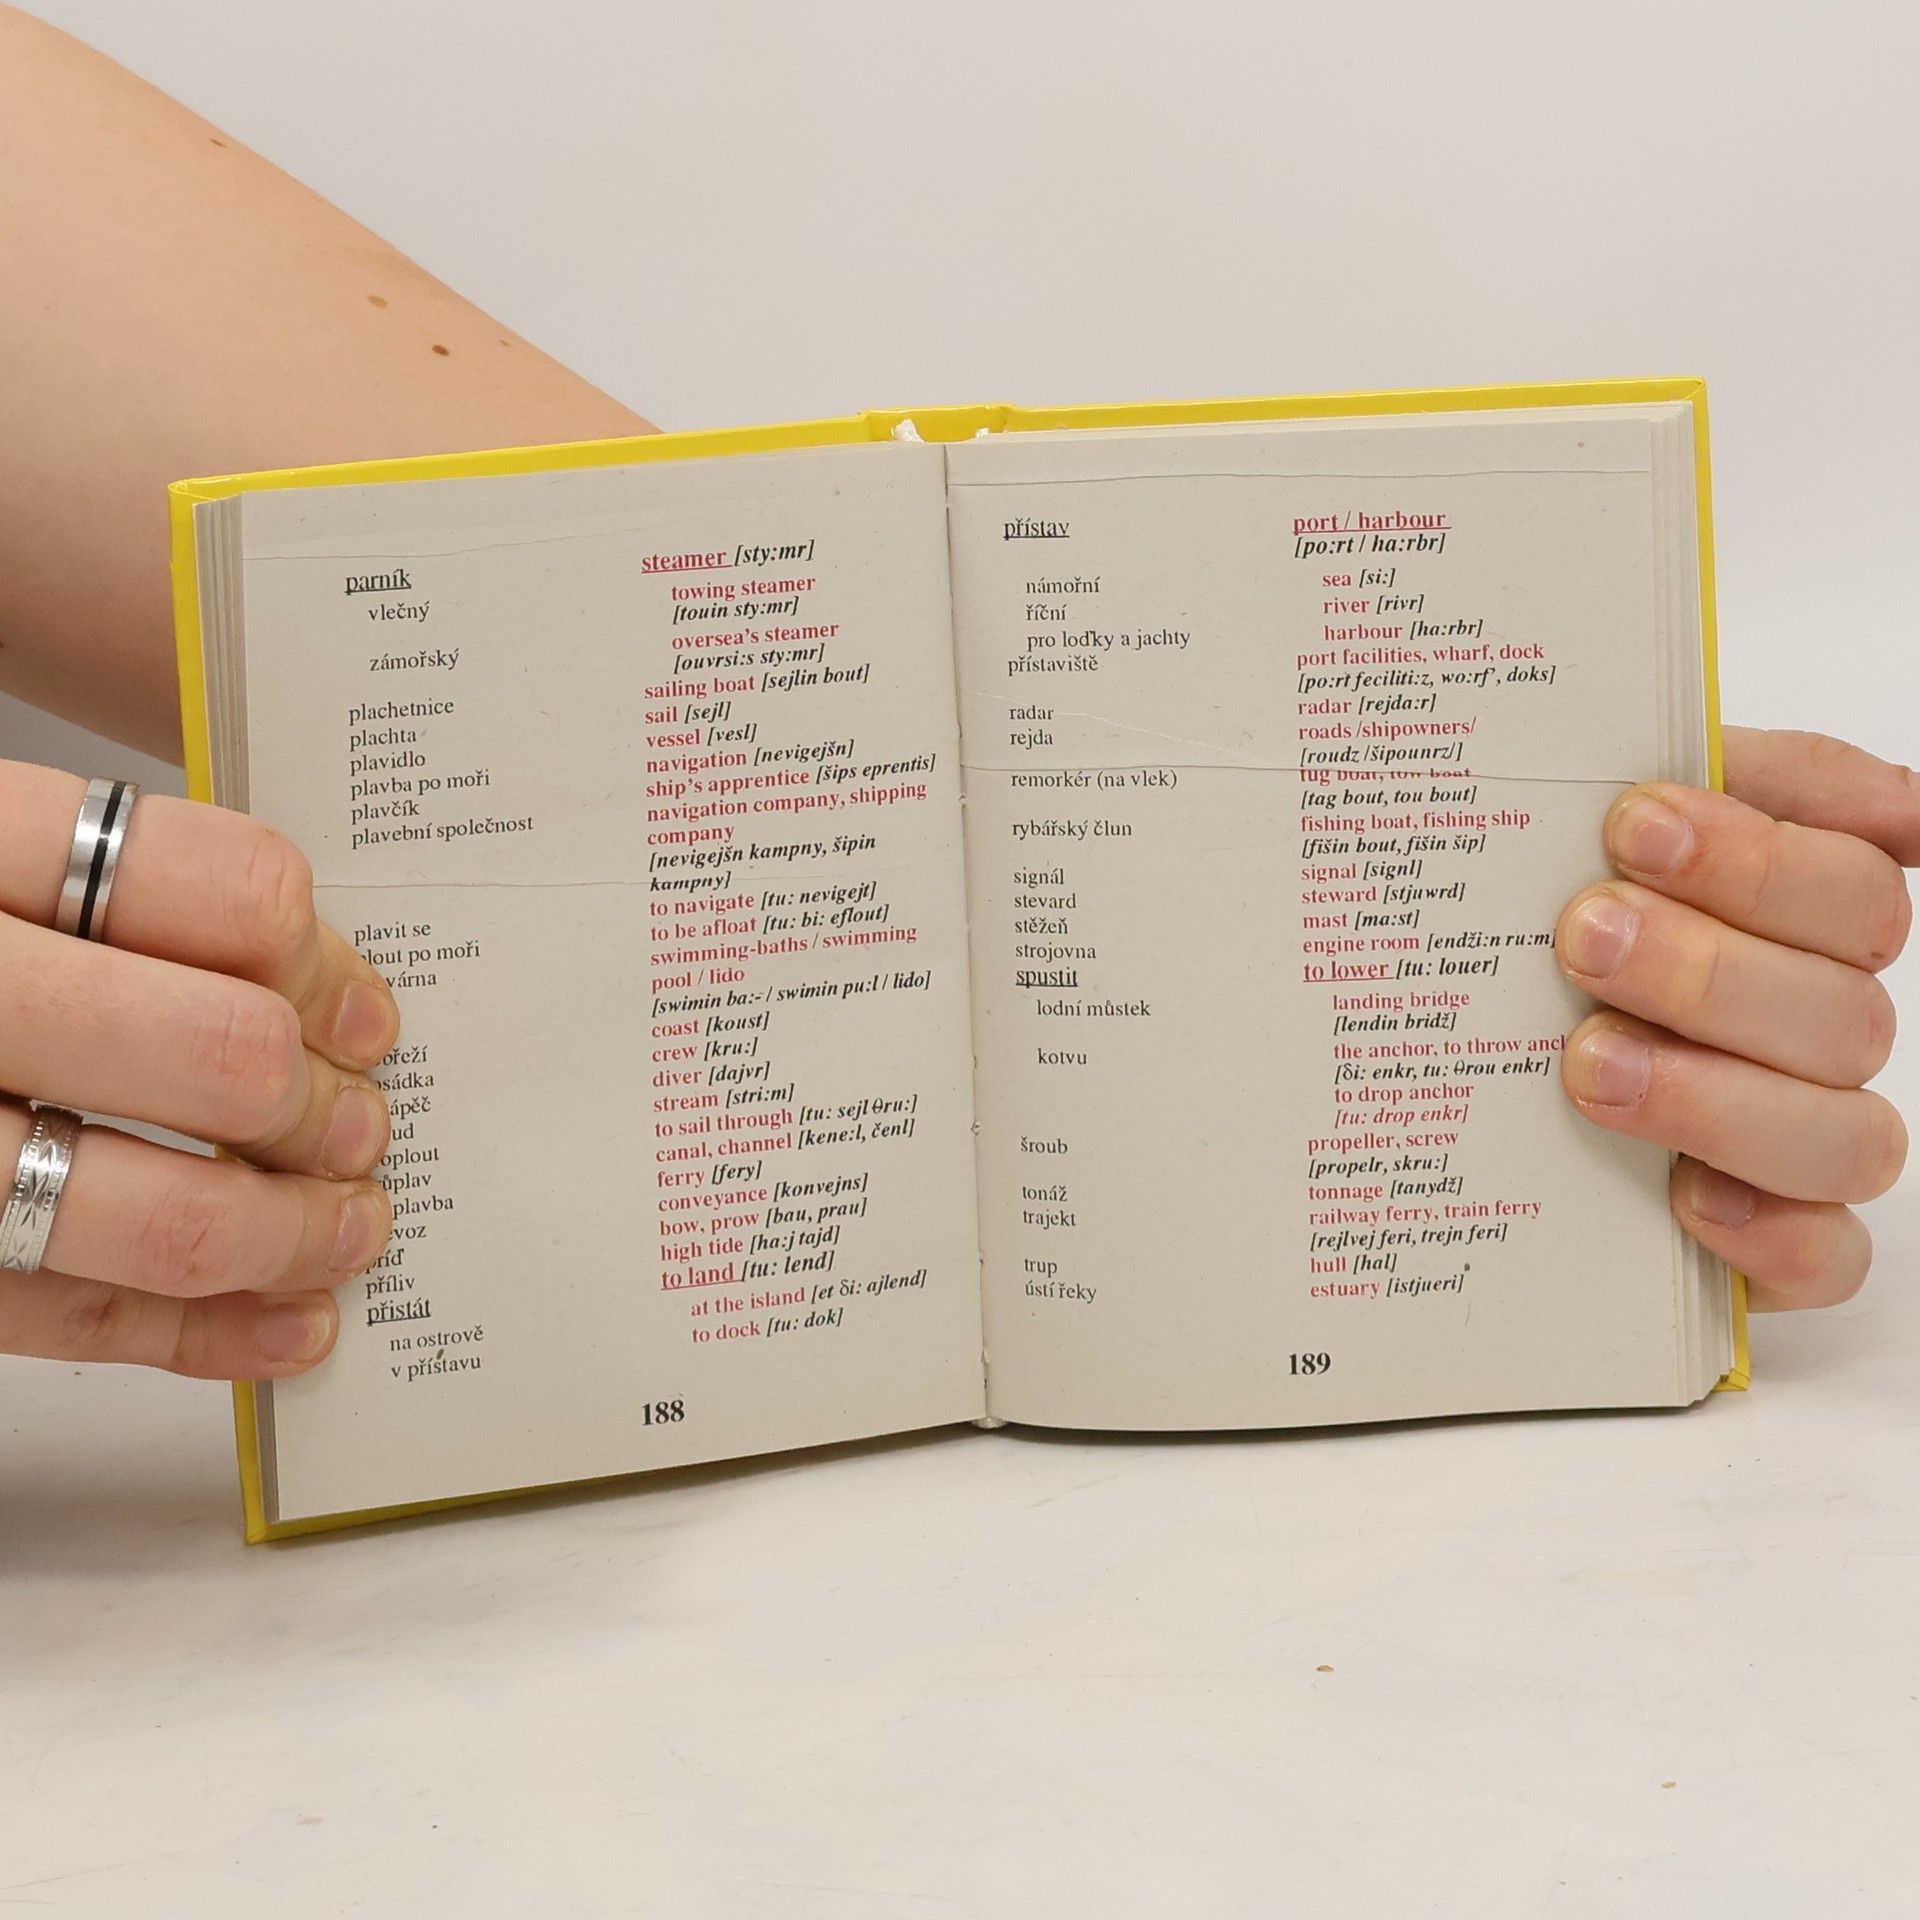 parník steamer [sty:mr]
vlečný towing steamer
[touin sty:mr]
zámořský oversea's steamer
[ouvrsi:s sty:mr]
plachetnice sailing boat [sejlin bout]
plachta sail [sejl]
plavidlo vessel [vesl]
plavba po moři navigation [nevigejšn]
plavčík ship's apprentice [šips eprentis]
plavební společnost navigation company, shipping
company
[nevigejšn kampny, šipin
kampny]
plavit se to navigate [tu: nevigejt]
po moři to be afloat [tu: bi: eflout]
swimming-baths / swimming
pool / lido
[swimin ba:- / swimin pu:l / lido]
coast [koust]
crew [kru:]
diver [dajvr]
stream [stri:m]
to sail through [tu: sejl θru:]
canal, channel [kene:l, čenl]
ferry [fery]
conveyance [konvejns]
bow, prow [bau, prau]
příliv high tide [ha:j tajd]
přistát to land [tu: lend]
na ostrově at the island [et δi: ajlend]
v přístavu to dock [tu: dok]
188
přístav port / harbour
[po:rt / ha:rbr]
námořní sea [si:]
říční river [rivr]
pro loďky a jachty harbour [ha:rbr]
přístaviště port facilities, wharf, dock
[po:rt feciliti:z, wo:rf', doks]
radar radar [rejda:r]
rejda roads /shipowners/
[roudz /šipounrz/]
remorkér (na vlek) tug boat, tow boat
[tag bout, tou bout]
rybářský člun fishing boat, fishing ship
[fišin bout, fišin šip]
signál signal [signl]
stevard steward [stjuwrd]
stěžeň mast [ma:st]
strojovna engine room [endži:n ru:m]
spustit to lower [tu: louer]
lodní můstek landing bridge
[lendin bridž]
kotvu the anchor, to throw
[δi: enkr, tu: θrou enkr]
to drop anchor
[tu: drop enkr]
šroub propeller, screw
[propelr, skru:]
tonáž tonnage [tanydž]
trajekt railway ferry, train ferry
[rejlvej feri, trejn feri]
trup hull [hal]
ústí řeky estuary [istjueri]
189